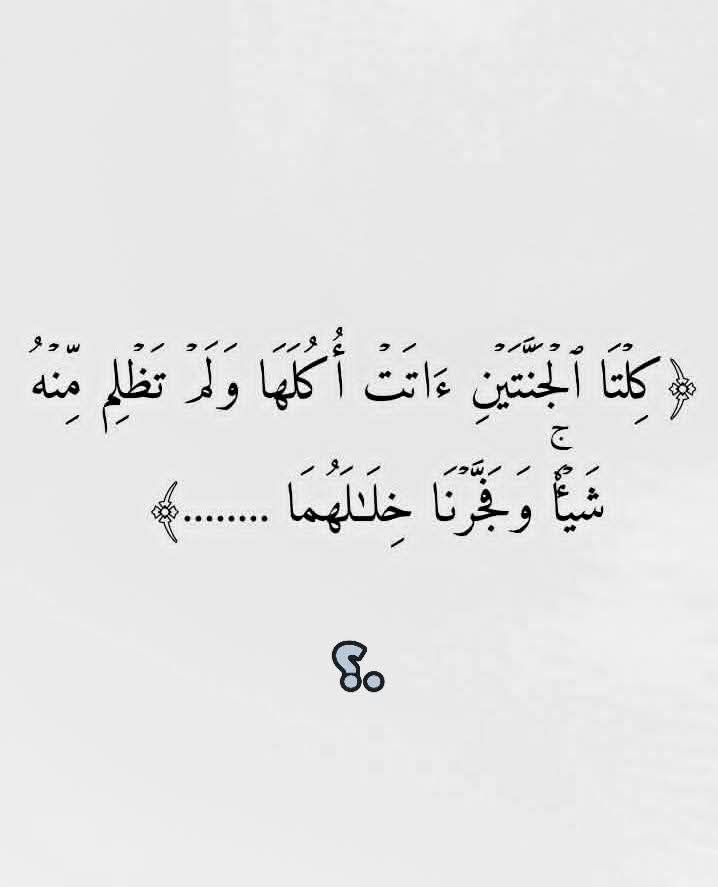 ﴿كِلۡتَا ٱلۡجَنَّتَيۡنِ ءَاتَتۡ أُكُلَهَا وَلَمۡ تَظۡلِم مِّنۡهُ
شَيۡـٔٗاۚ وَفَجَّرۡنَا خِلَٰلَهُمَا ........﴾
؟.